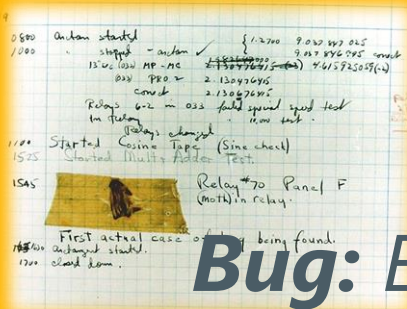 9
0800 Antan started
1000 " stopped - antan ✓ { 1.2700 9.037 847 025
9.037 846 995 correct
13"uc (032) MP-MC 2.130476415 (-3) 4.615925059(-2)
(033) PRO 2 2.130476415
correct 2.130676415
Relays 6-2 in 033 failed special speed test
in relay " 11.000 test.
Relays changed
1100 Started Cosine Tape (Sine check)
1525 Started Mult+Adder Test.
1545 Relay #70 Panel F
(moth) in relay.
First actual case of bug being found.
1630 antangent started.
1700 closed down.
Bug: E